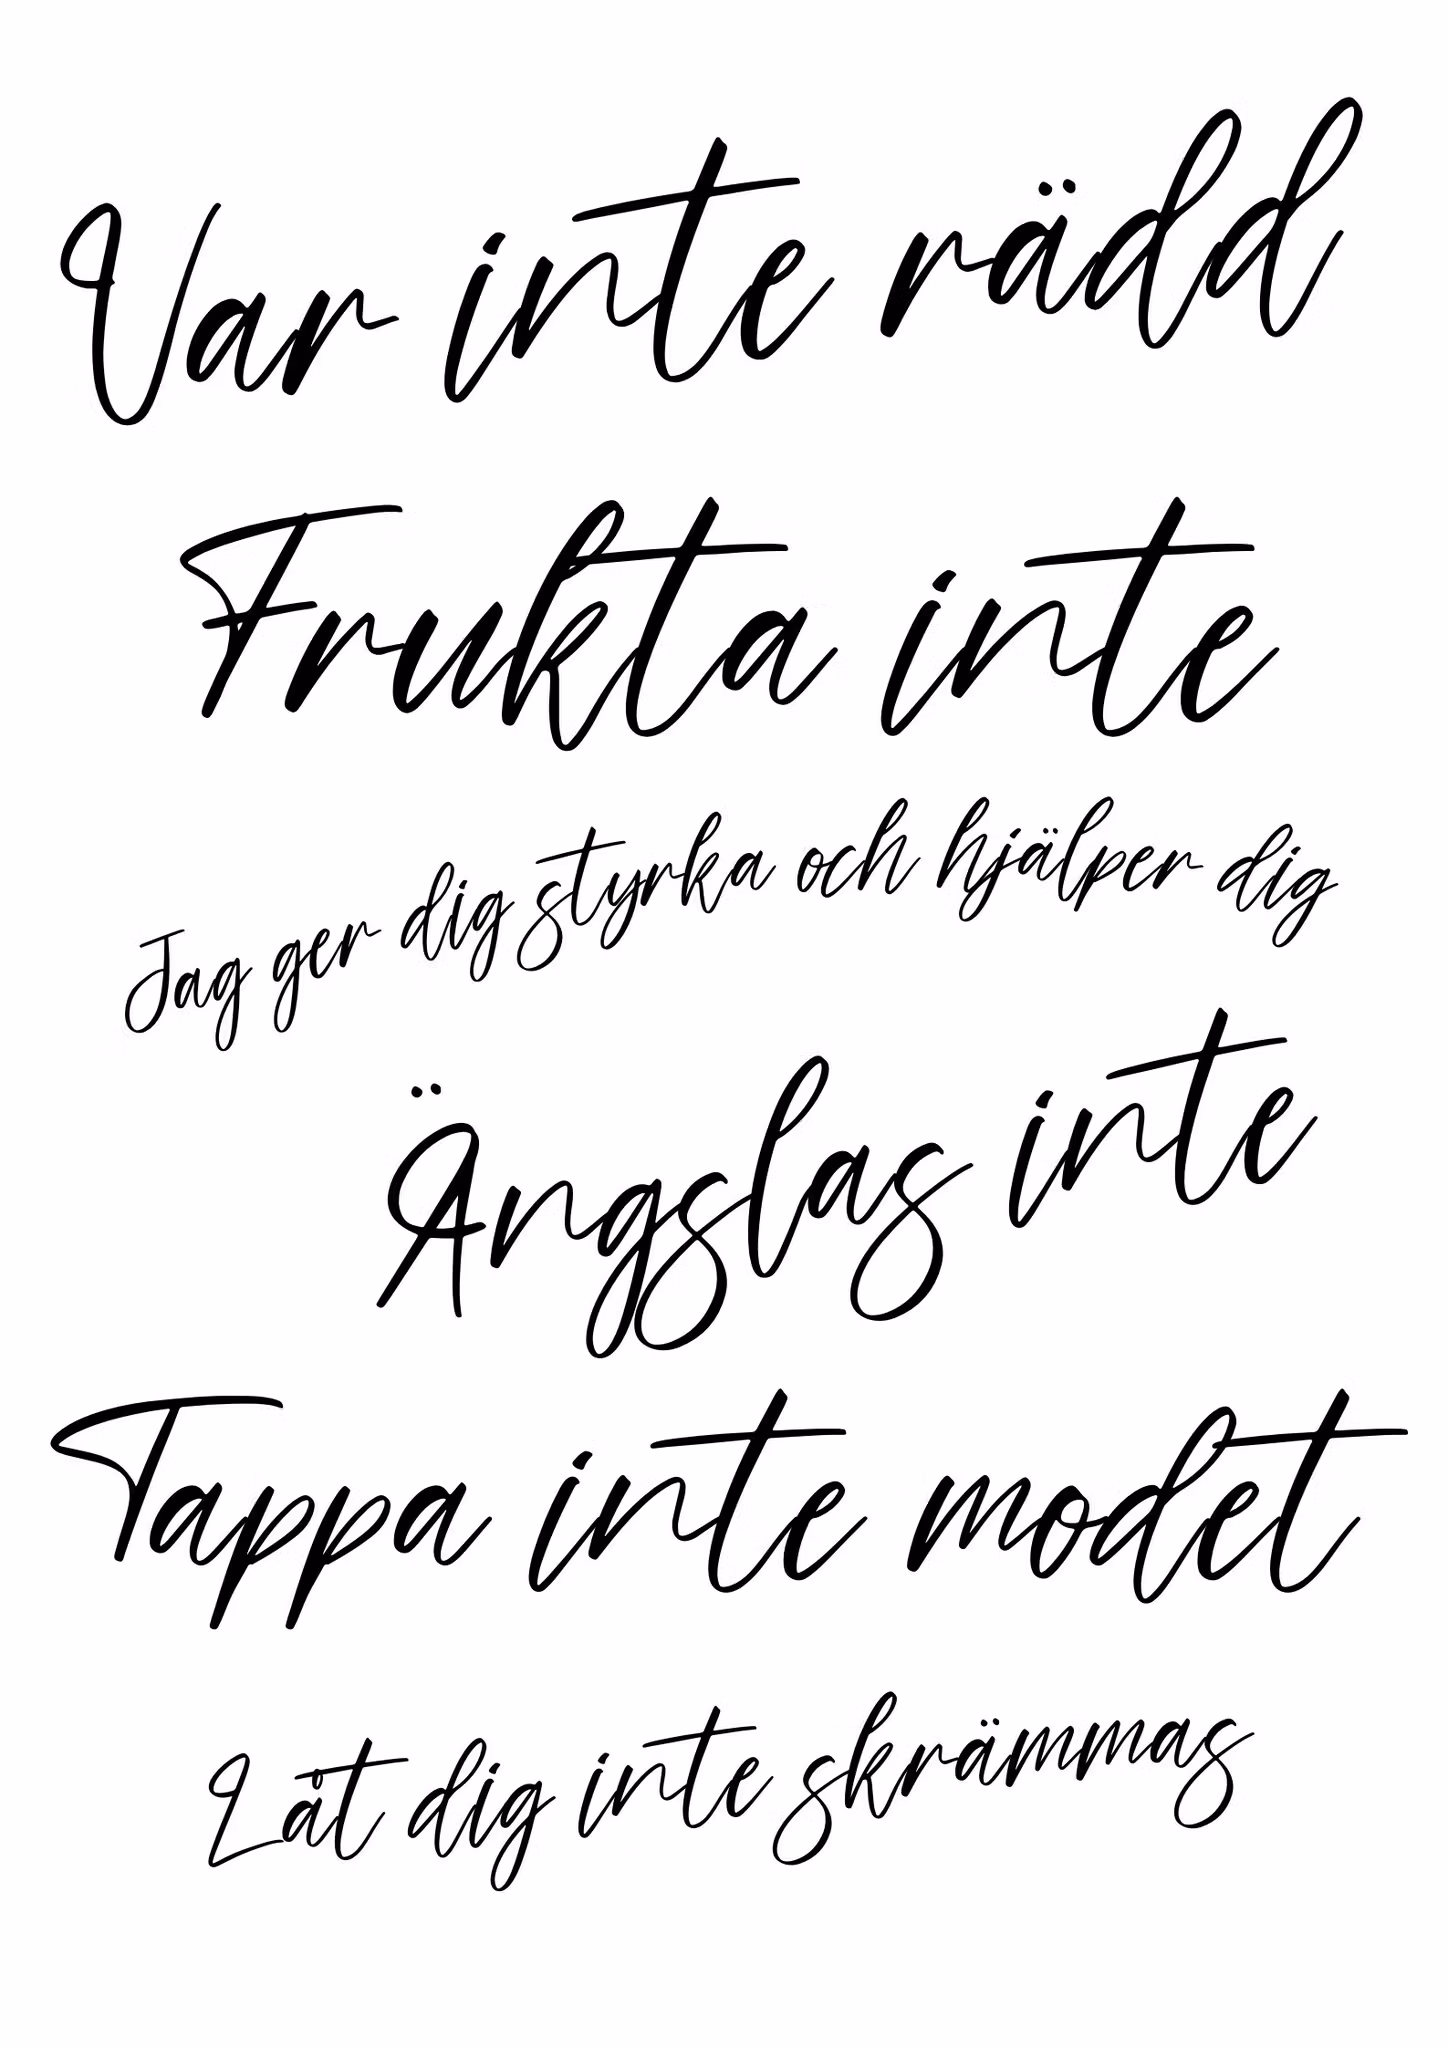 Var inte rädd
Frukta inte
Jag ger dig styrka och hjälper dig
Ängslas inte
Tappa inte modet
Låt dig inte skrämmas